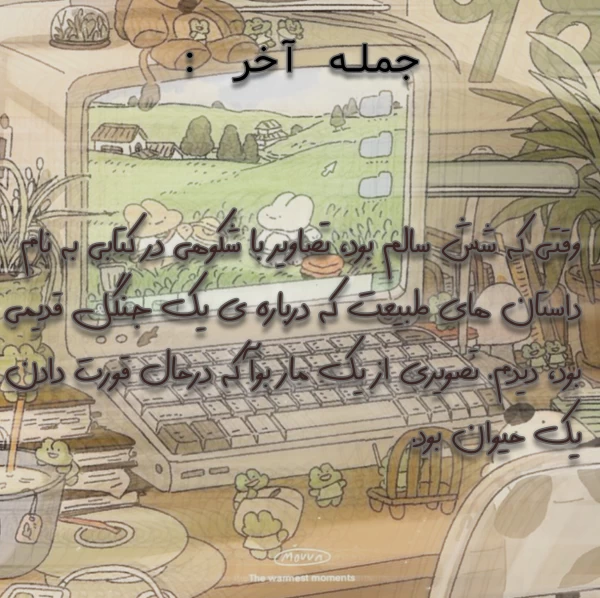 جمله آخر :
وقتی که شش سالم بود، تصاویر با شکوهی در کتابی به نام
داستان های طبیعت که درباره ی یک جنگل قدیمی
بود، دیدم. تصویری از یک مار بوآ که درحال قورت دادن
یک حیوان بود.
Movva
The warmest moments